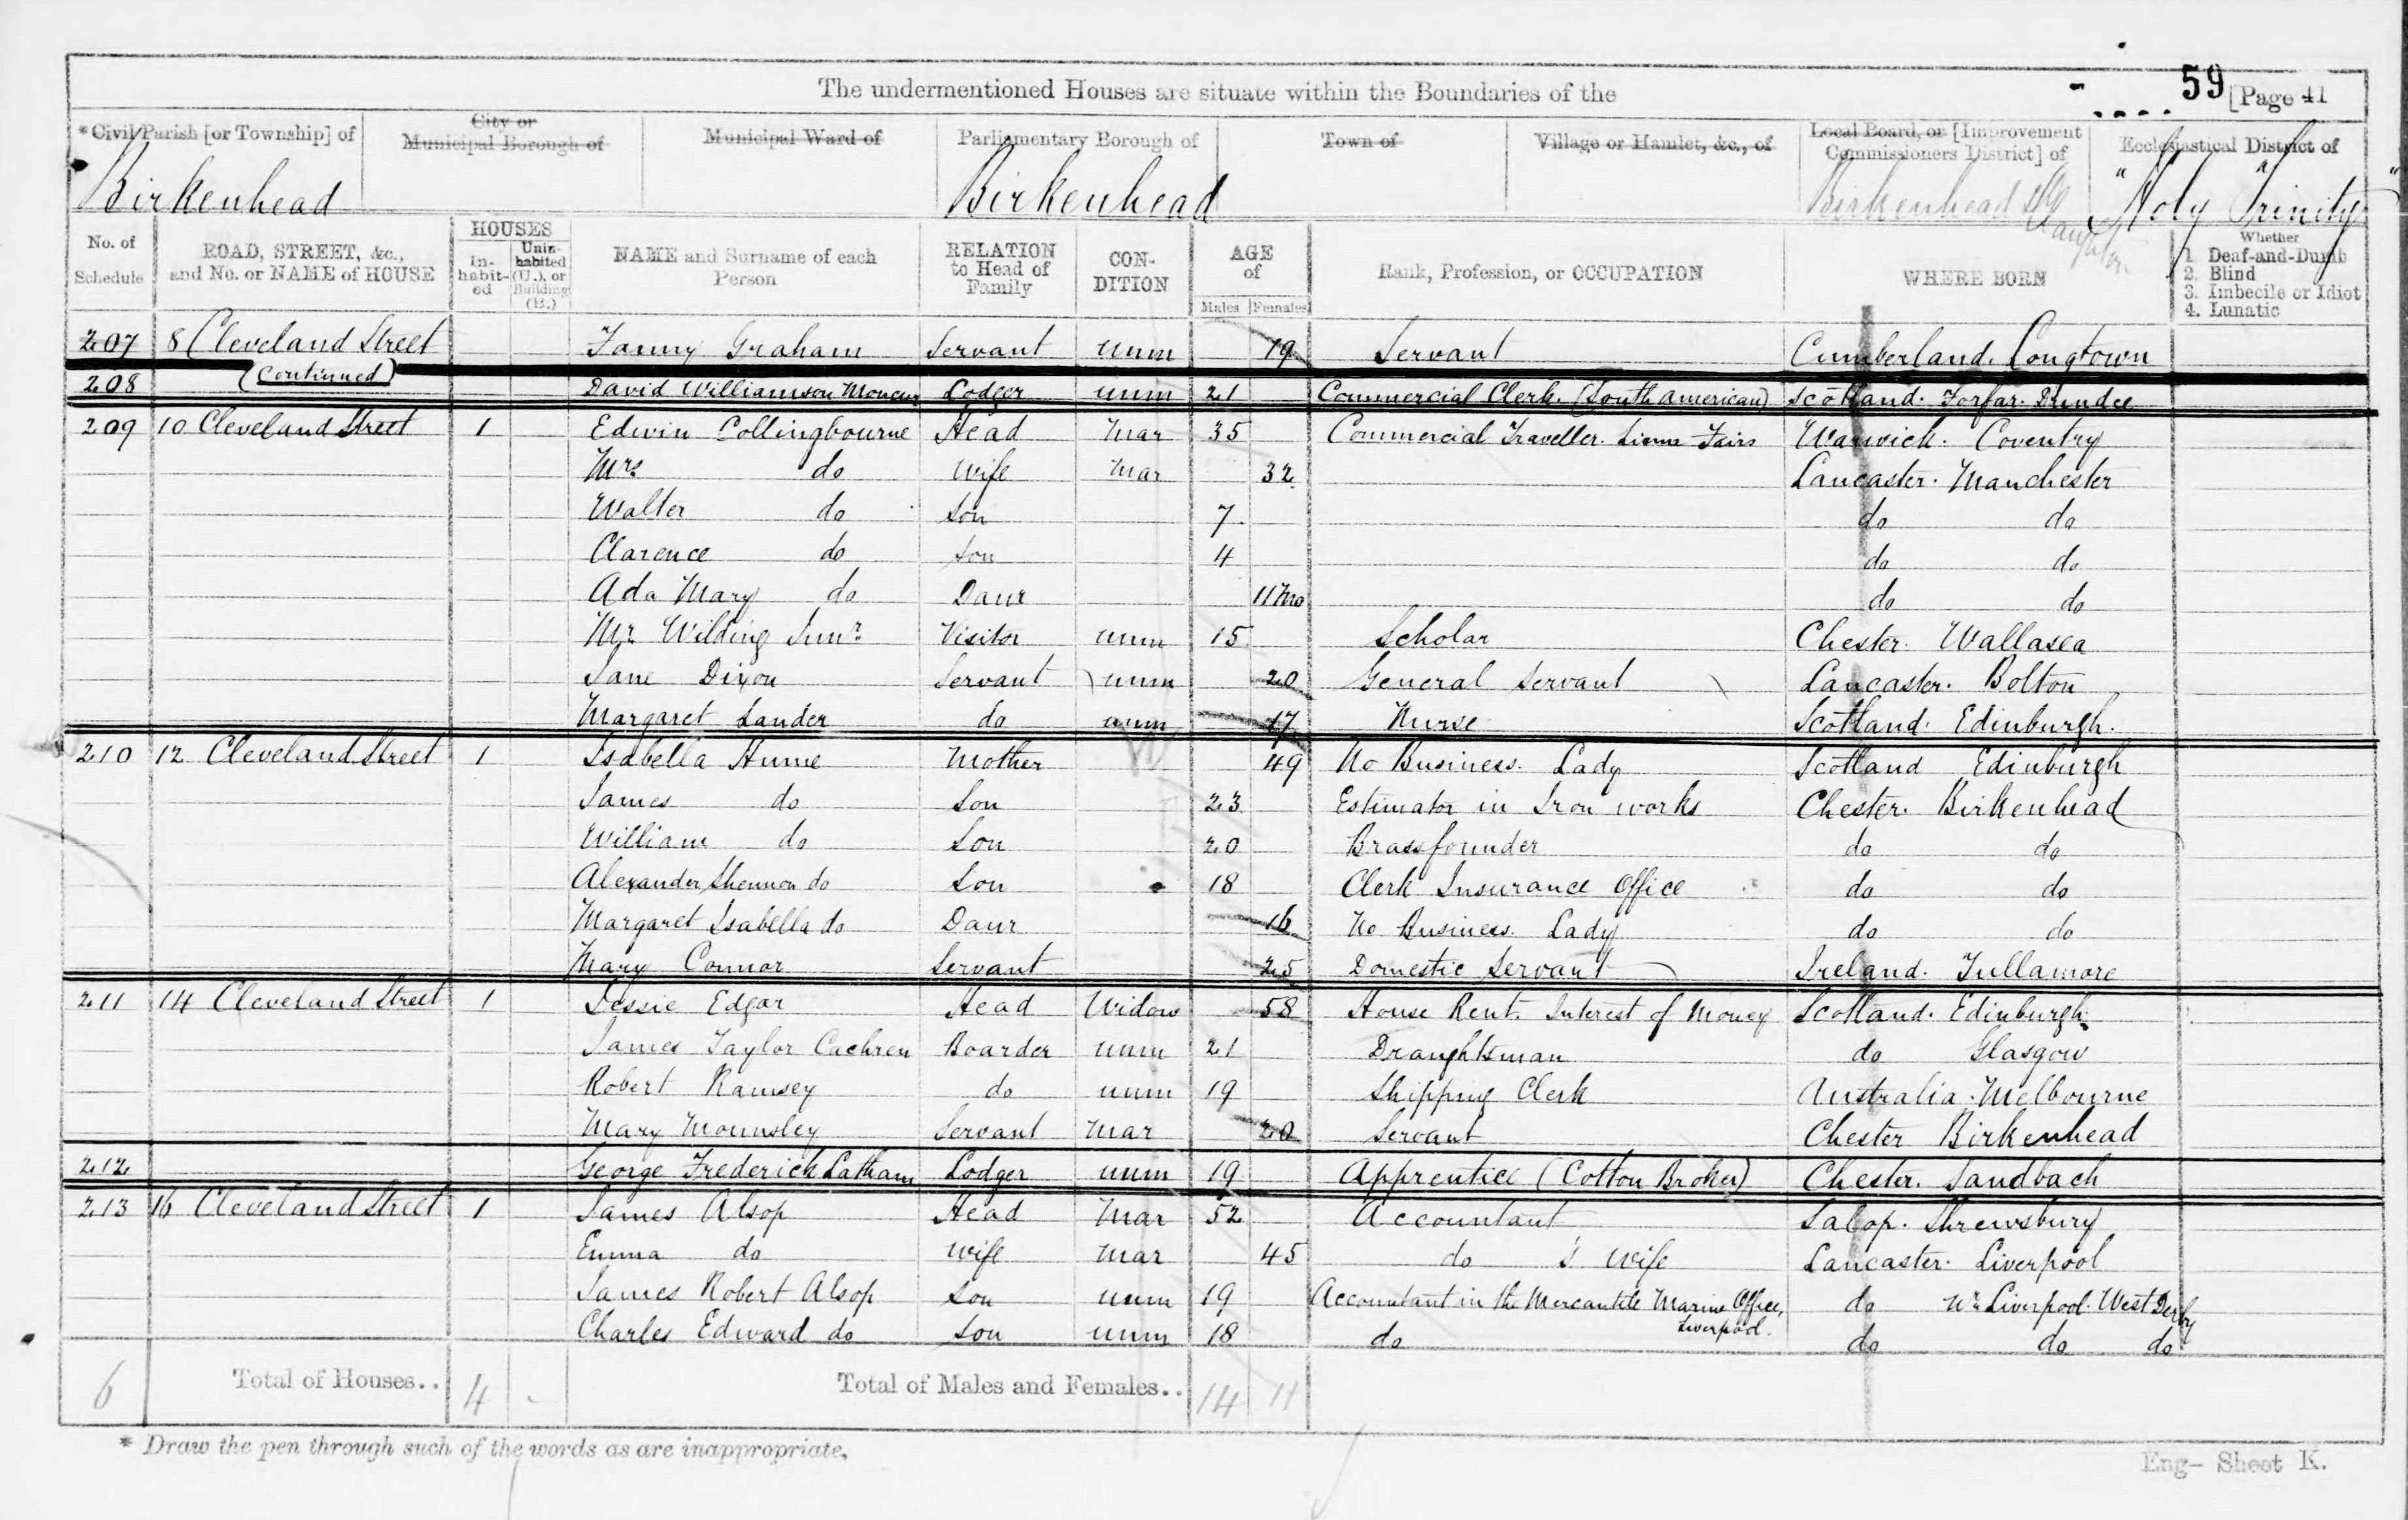 The undermentioned Houses are situate within the Boundaries of the
59 [Page 41
*Civil Parish [or Township] of City or Municipal Borough of Municipal Ward of Parliamentary Borough of Town of Village or Hamlet, &c., of Local Board, or [Improvement Commissioners District] of Ecclesiastical District of
Birkenhead Birkenhead Birkenhead "Holy Trinity"
No. of Schedule ROAD, STREET, &c., and No. or NAME of HOUSE HOUSES In-habit-ed Unin-habited (U.), or Building (B.) NAME and Surname of each Person RELATION to Head of Family CON-DITION AGE of Males Females Rank, Profession, or OCCUPATION WHERE BORN Whether 1. Deaf-and-Dumb 2. Blind 3. Imbecile or Idiot 4. Lunatic
207 8 Cleveland Street Fanny Graham Servant unm 19 Servant Cumberland. Longtown
208 (Continued) David Williamson Moncur Lodger unm 21 Commercial Clerk. (South American) Scotland. Forfar. Dundee
209 10 Cleveland Street 1 Edwin Collingbourne Head Mar 35 Commercial Traveller. Warwick. Coventry
Mrs do Wife Mar 32 Lancaster. Manchester
Walter do Son 7 do do
Clarence do Son 4 do do
Ada Mary do Daur 11 Mo do do
Mr Wilding Junr. Visitor unm 15 Scholar Chester. Wallasea
Jane Dixon Servant unm 20 General Servant Lancaster. Bolton
Margaret Lander do unm 17 Nurse Scotland. Edinburgh.
210 12 Cleveland Street 1 Isabella Hume Mother 49 No Business. Lady Scotland Edinburgh
James do Son 23 Estimator in Iron works Chester. Birkenhead
William do Son 20 Brassfounder do do
Alexander Shennon do Son 18 Clerk Insurance Office do do
Margaret Isabella do Daur 16 No Business. Lady do do
Mary Connor Servant 25 Domestic Servant Ireland. Tullamore
211 14 Cleveland Street 1 Jessie Edgar Head Widow 58 House Rent. Interest of Money Scotland. Edinburgh
James Taylor Cachren Boarder unm 21 Draughtsman do Glasgow
Robert Ramsey do unm 19 Shipping Clerk Australia. Melbourne
Mary Mounsley Servant Mar 20 Servant Chester Birkenhead
212 George Frederick Latham Lodger unm 19 Apprentice (Cotton Broker) Chester. Sandbach
213 16 Cleveland Street 1 James Alsop Head Mar 52 Accountant Salop. Shrewsbury
Emma do Wife Mar 45 do 's Wife Lancaster. Liverpool
James Robert Alsop Son unm 19 Accountant in the Mercantile Marine Office, Liverpool. do Nr. Liverpool. West Derby
Charles Edward do Son unm 18 do do do do
6 Total of Houses.. 4 - Total of Males and Females.. 14 11
* Draw the pen through such of the words as are inappropriate.
Eng- Sheet K.